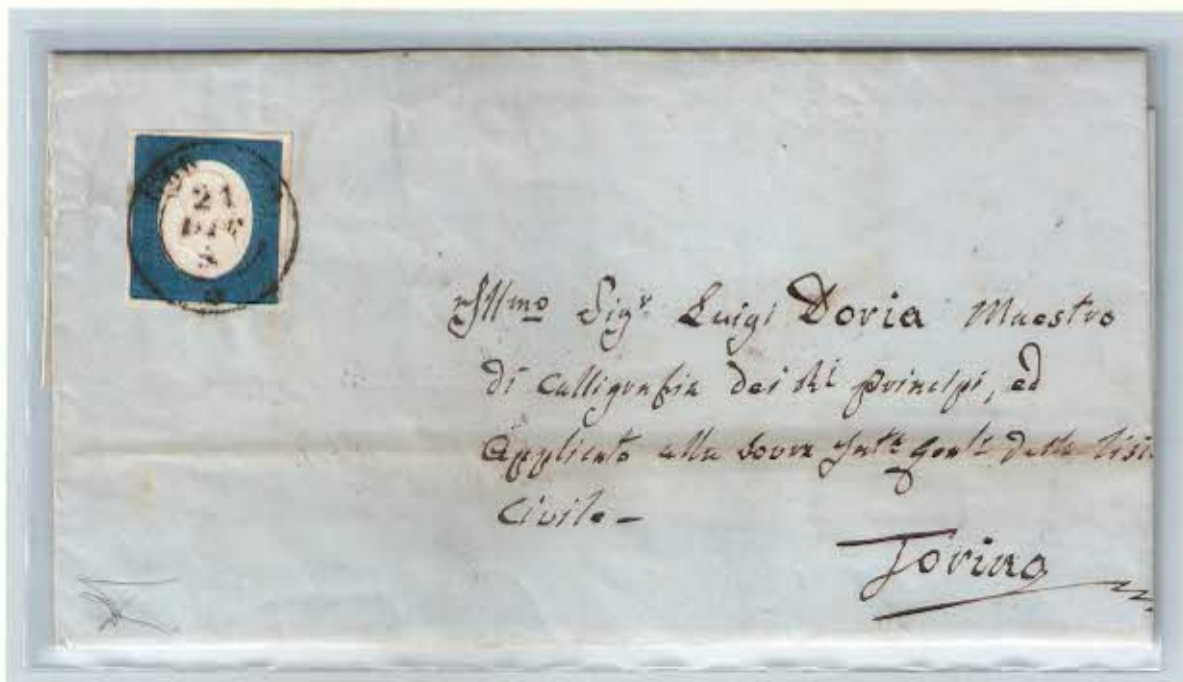 21
DIC
Ill.mo Sig.r Luigi Doria Maestro
di Calligrafia dei Rli Principi, ed
Applicato alla Sovra Int.a Gen.le della Lista
Civile -
Torino